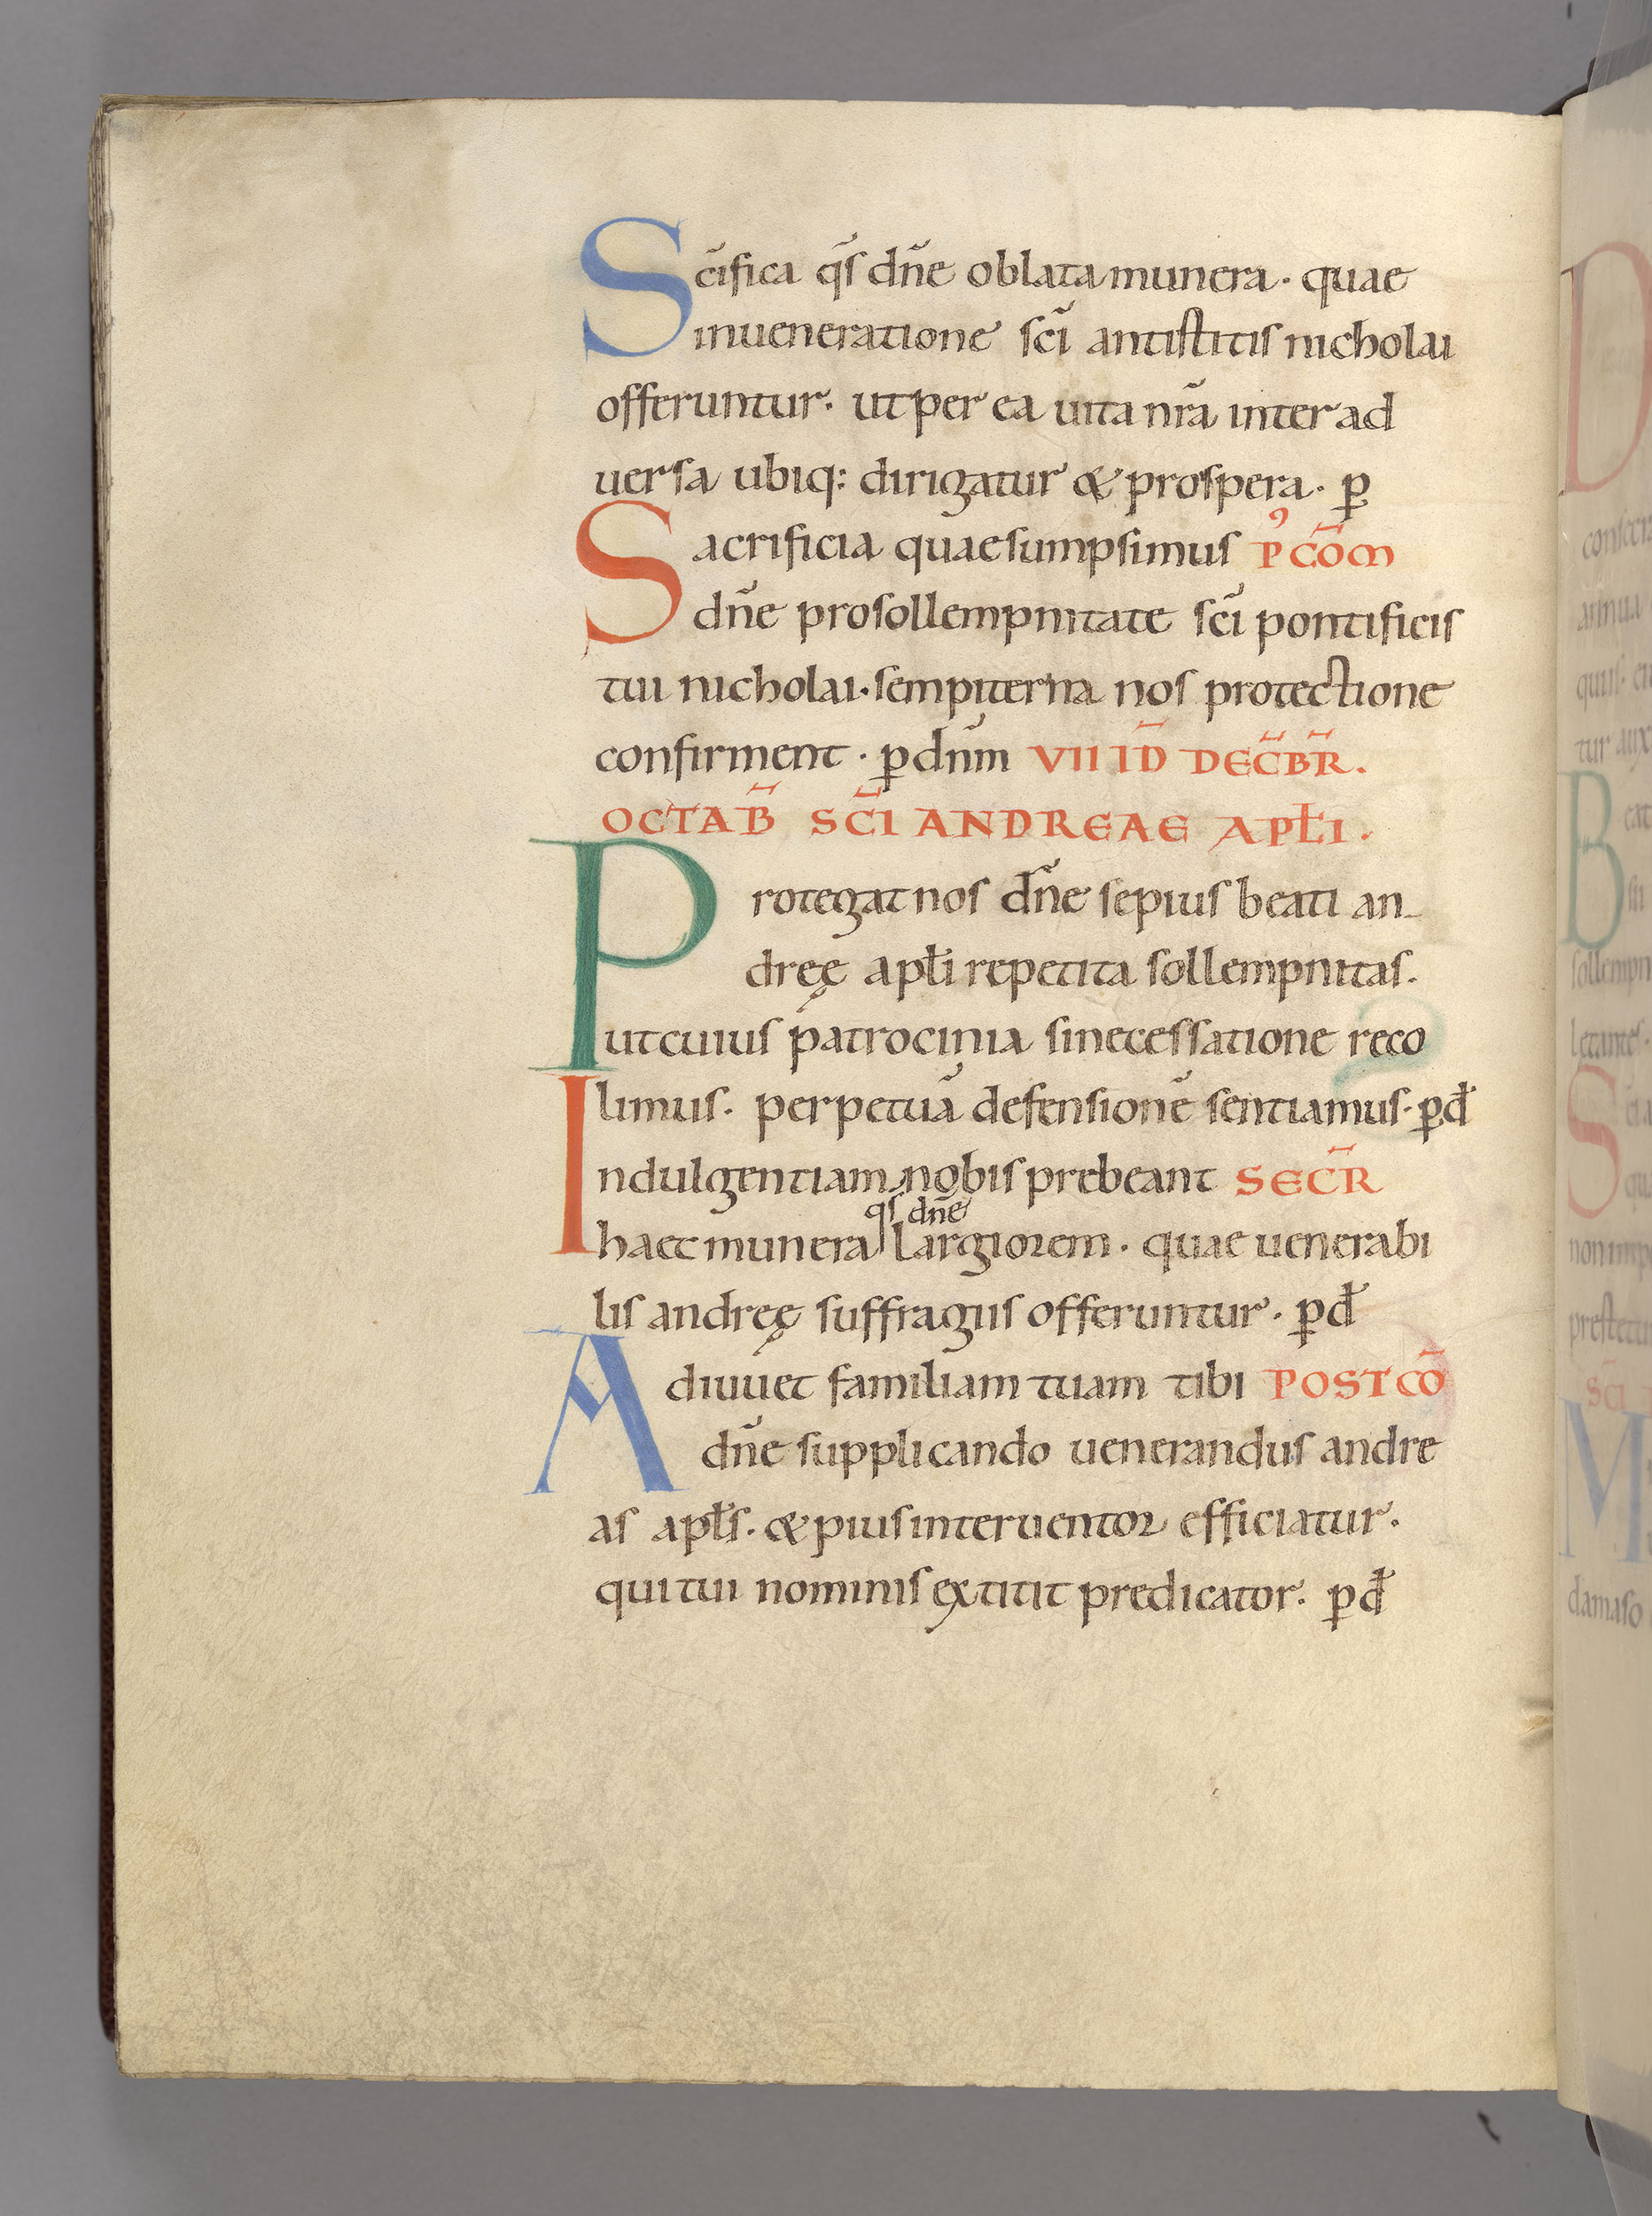 Sci̅fica q̅s dn̅e oblata munera· quae
inueneratione sci̅ antistitis nicholai
offeruntur· ut per ea uita nr̅a inter ad
uersa ubiq: dirigatur & prospera· p̲
Sacrificia quae sumpsimus P᾽ CO̅M
dn̅e pro sollempnitate sci̅ pontificis
tui nicholai· sempiterna nos protectione
confirment· p̲ dn̅m VII ID̅ DEC̅BR̅.
OCTAB̅ SC̅I ANDREAE APŁI.
Protegat nos dn̅e sepius beati an-
dreę apłi repetita sollempnitas.
ut cuius patrocinia sine cessatione reco
limus· perpetua̅ defensione̅ sentiamus· p̲ đ
Indulgentiam nobis prebeant SEC̅R
q̅s dn̅e
haec munera largiorem· quae uenerabi
lis andreę suffragiis offeruntur· p̲ đ
Adiuuet familiam tuam tibi POST CO̅
dn̅e supplicando uenerandus andre
as apłs· & pius interuentor efficiatur·
qui tui nominis extitit predicator· p̲ đ